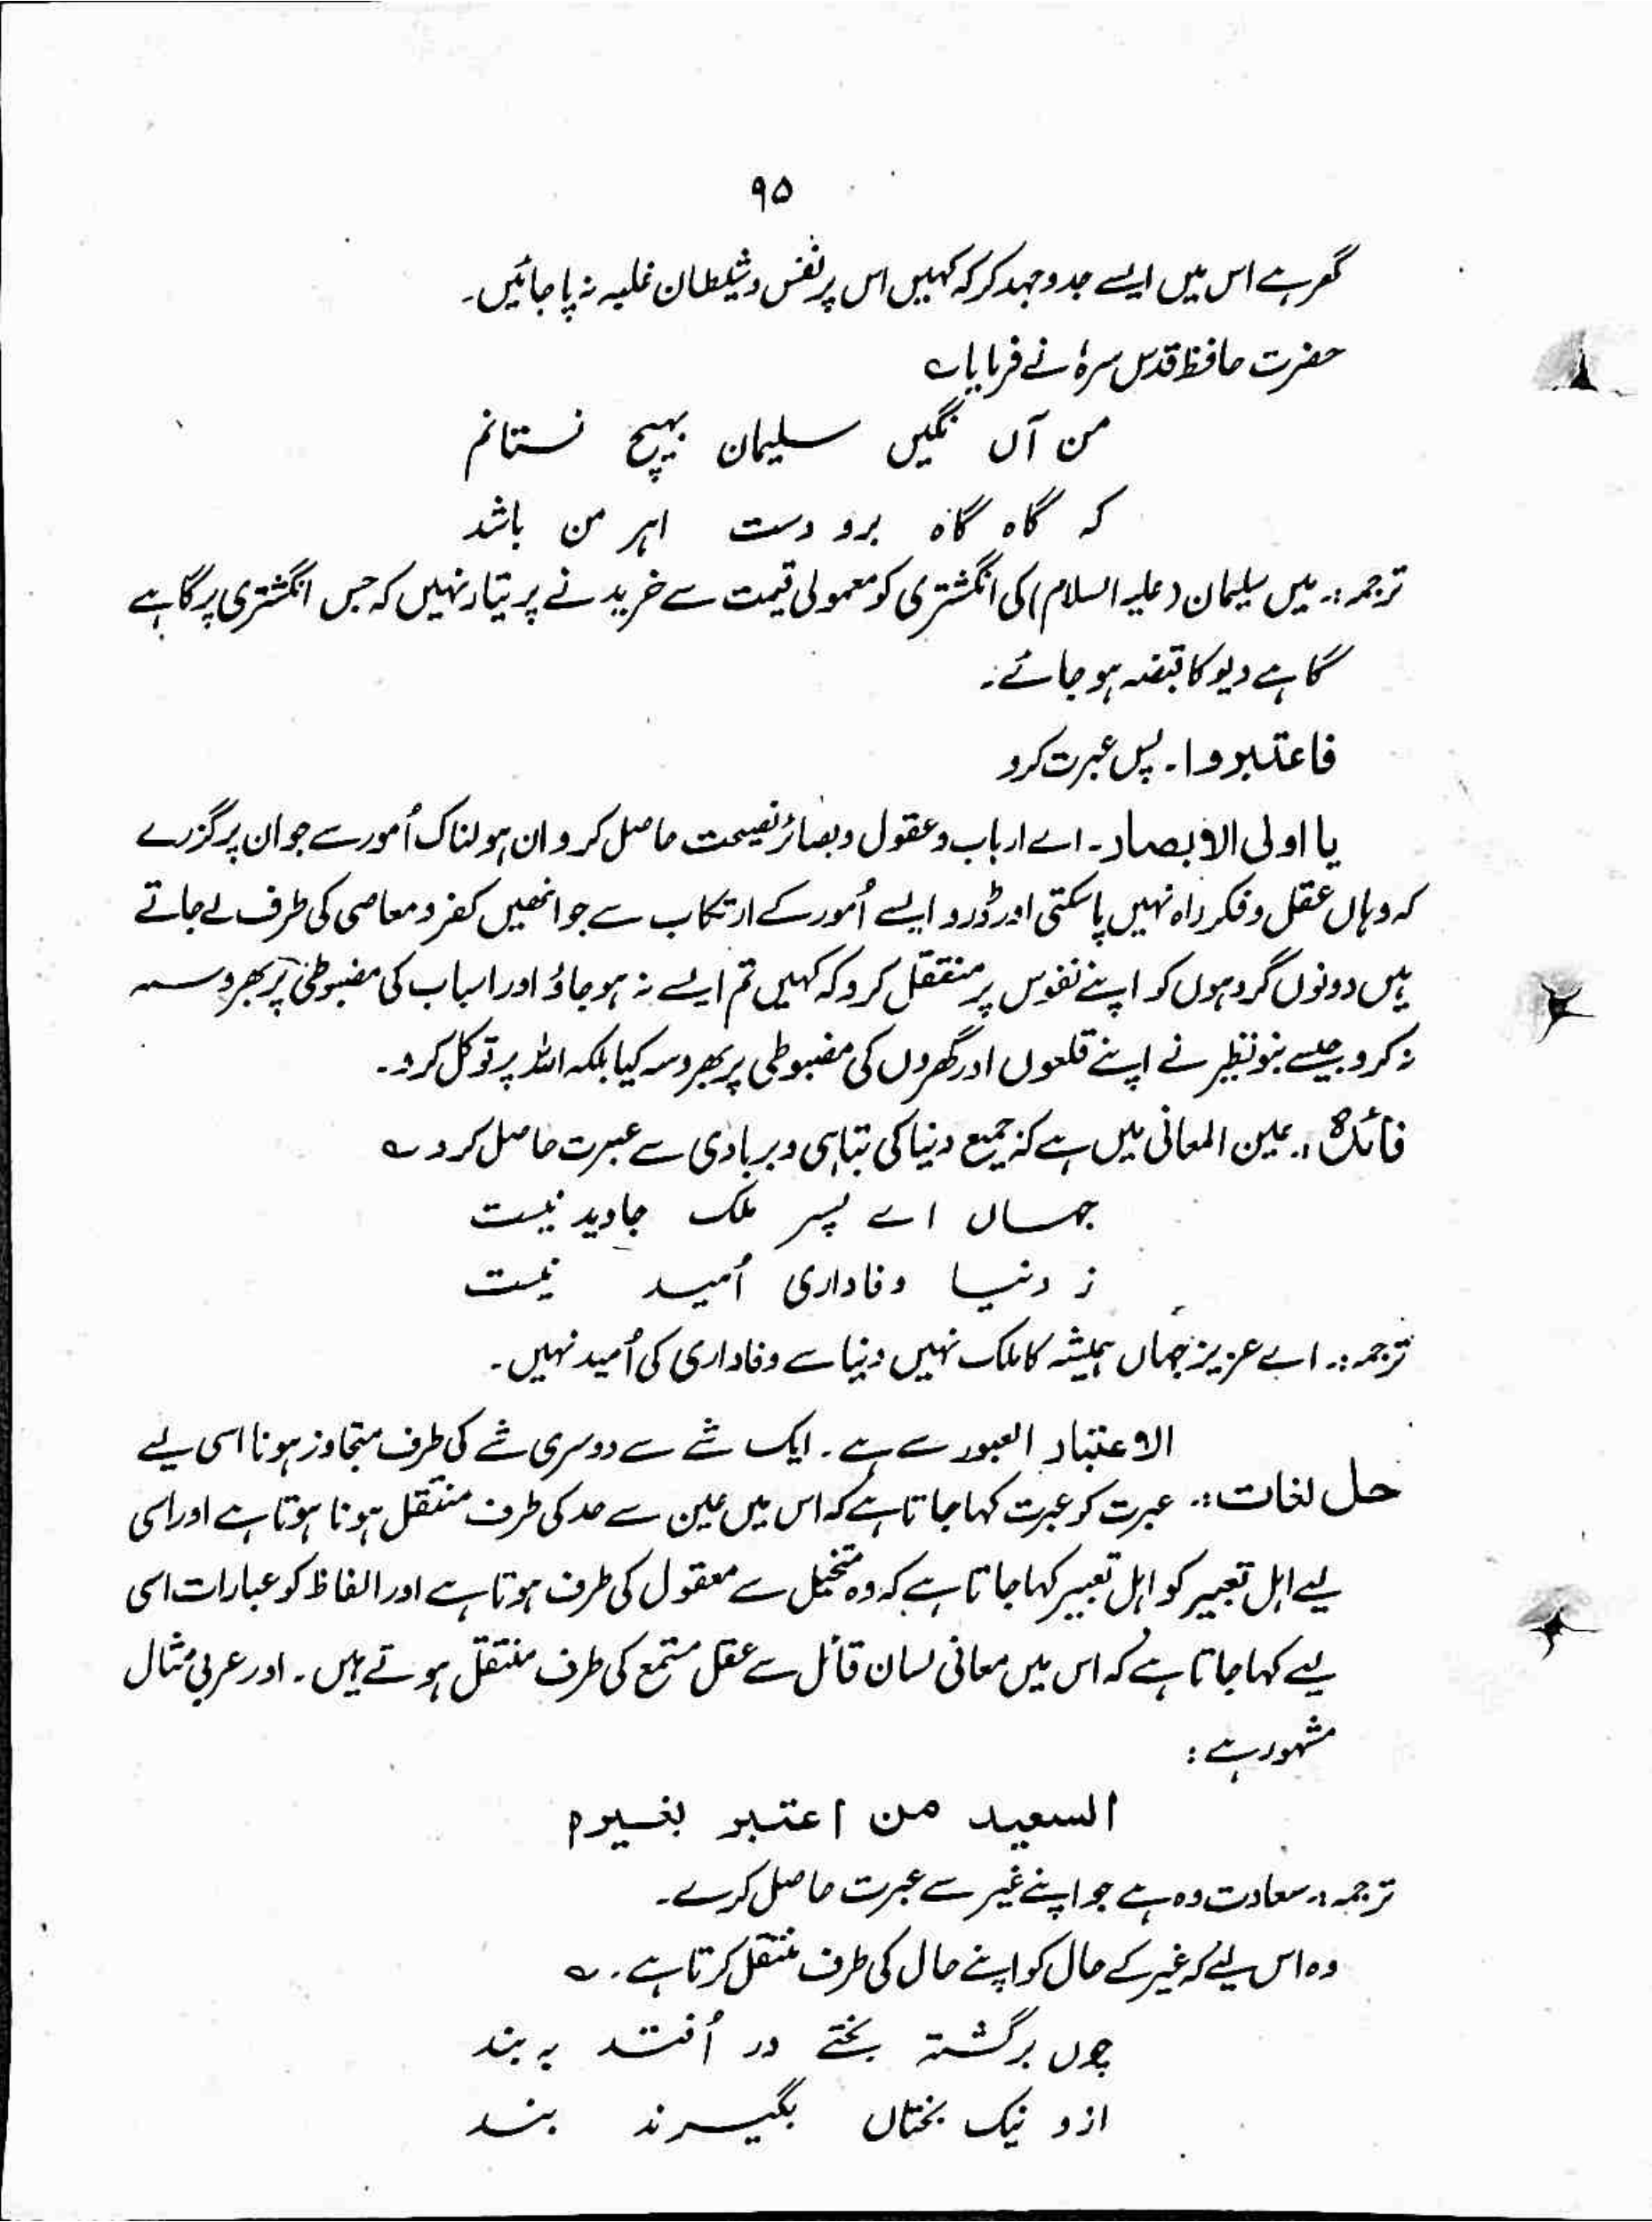 ۹۵
گھر ہے اس میں ایسے جدوجہد کر کہ کہیں اس پر نفس و شیطان غلبہ نہ پا جائیں۔
حضرت حافظ قدس سرہٗ نے فرمایا ؎
من آں نگیں سلیمان بہیچ نستانم
کہ گاہ گاہ برو دست اہر من باشد
ترجمہ:۔ میں سلیمان (علیہ السلام) کی انگشتری کو معمولی قیمت سے خریدنے پر تیار نہیں کہ جس انگشتری پر گاہے
گاہے دیو کا قبضہ ہو جائے۔
فاعتبروا۔ پس عبرت کرو
یا اولی الابصار۔ اے ارباب و عقول و بصائر نصیحت حاصل کرو ان ہولناک اُمور سے جو ان پر گزرے
کہ وہاں عقل و فکر راہ نہیں پا سکتی اور ڈرو ایسے اُمور کے ارتکاب سے جو انھیں کفر و معاصی کی طرف لے جاتے
ہیں دونوں گروہوں کو اپنے نفوس پر منتقل کرو کہ کہیں تم ایسے نہ ہو جاؤ اور اسباب کی مضبوطی پر بھروسہ
نہ کرو جیسے بنو نظیر نے اپنے قلعوں اور گھروں کی مضبوطی پر بھروسہ کیا بلکہ اللہ پر توکل کرو۔
فائدہ:۔ عین المعانی میں ہے کہ جمیع دنیا کی تباہی و بربادی سے عبرت حاصل کرو ؎
جہاں اے پسر ملک جاوید نیست
ز دنیا وفاداری اُمید نیست
ترجمہ:۔ اے عزیز جہاں ہمیشہ کا ملک نہیں دنیا سے وفاداری کی اُمید نہیں۔
الاعتبار العبور سے ہے۔ ایک شے سے دوسری شے کی طرف متجاوز ہونا اسی لیے
حل لغات:۔ عبرت کو عبرت کہا جاتا ہے کہ اس میں عین سے حد کی طرف منتقل ہونا ہوتا ہے اور اسی
لیے اہل تعبیر کو اہل تعبیر کہا جاتا ہے کہ وہ متخیل سے معقول کی طرف ہوتا ہے اور الفاظ کو عبارات اسی
لیے کہا جاتا ہے کہ اس میں معانی لسان قائل سے عقل مستمع کی طرف منتقل ہوتے ہیں۔ اور عربی مثال
مشہور ہے:
السعید من اعتبر بغیرہ
ترجمہ:۔ سعادت وہ ہے جو اپنے غیر سے عبرت حاصل کرے۔
وہ اس لیے کہ غیر کے حال کو اپنے حال کی طرف منتقل کرتا ہے۔ ؎
چوں برگشتہ بختے در اُفتد بہ بند
ازو نیک بختاں بگیرند بند